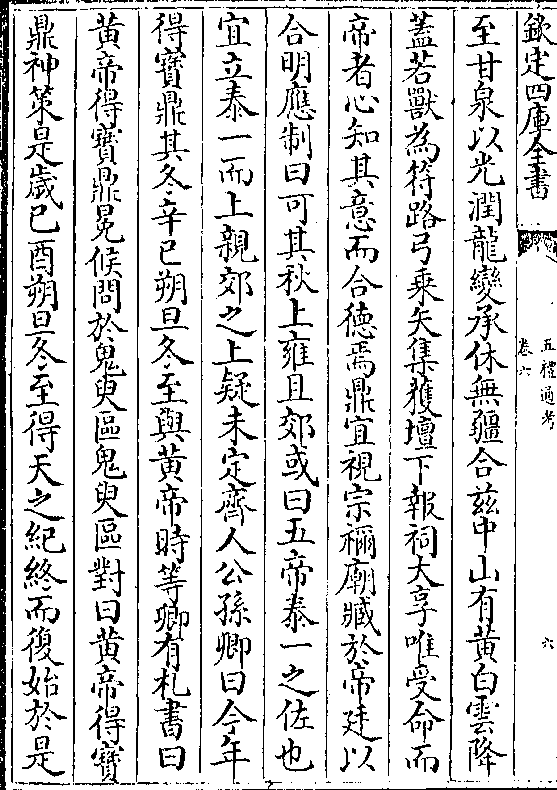 欽定四庫全書
五禮通考
卷六
六
至甘泉以光潤龍變承休無疆合兹中山有黄白雲降
蓋若獸為符路弓乗矢集獲壇下報祠大享唯受命而
帝者心知其意而合德焉鼎宜視宗禰廟藏於帝廷以
合明應制曰可其秋上雍且郊或曰五帝泰一之佐也
宜立泰一而上親郊之上疑未定齊人公孫卿曰今年
得寳鼎其冬辛巳朔旦冬至與黄帝時等卿有札書曰
黄帝得寳鼎冕候問於鬼臾區鬼臾區對曰黄帝得寳
鼎神策是歲已酉朔旦冬至得天之紀終而復始於是